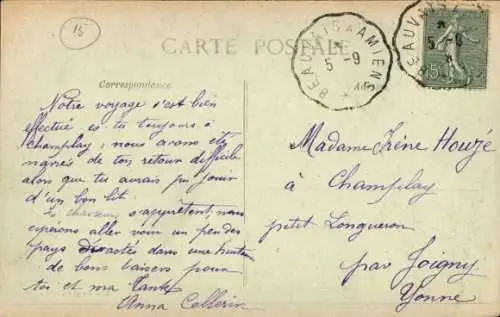 15
CARTE POSTALE
BEAUVAIS A AMIENS
5 -9
BEAUVAIS
5 -9
15
Correspondance
Notre voyage s'est bien
effectué es-tu toujours à
Champlay, nous avons été
navrés de ton retour difficile
alors que tu aurais pu jouir
d'un bon lit.
s'apprêtent, nous
espérons aller voir un peu des
pays dévastés dans une huitaine
de bons baisers pour
toi et ma tante
Anna Cellerin
Madame Irène Houze
à Champlay
petit Longueron
par Joigny
Yonne